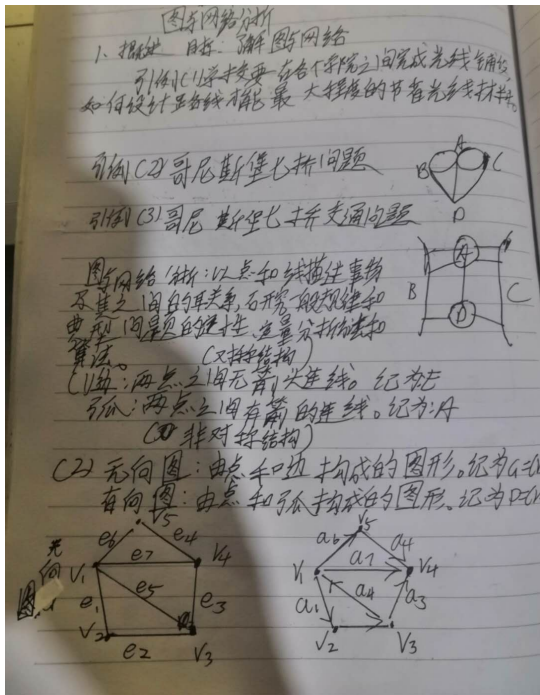 图与网络分析
1、概述 目标:了解图与网络
引例(1)学校要在各个学院之间完成光线铺设,
如何设计显各线才能最大程度的节省光线材料。
引例(2)哥尼斯堡七桥问题
A
B
C
D
引例(3)哥尼斯堡七桥交通问题
A
B
C
D
图与网络分析:以点和线描述事物
及其之间的联系,研究一般规律和
典型问题的 定量分析 和
算法。 (对称结构)
(1)边:两点之间无箭头连线。记为E
弧:两点之间有箭的连线。记为:A
(非对称结构)
(2)无向图:由点和边构成的图形。记为G=(
有向图:由点和弧构成的图形。记为D=(
无向图
V5
e6
e4
V1
e7
V4
e5
e1
e3
V2
e2
V3
V5
a6
a4
V1
a7
V4
a4
a1
a3
V2
V3